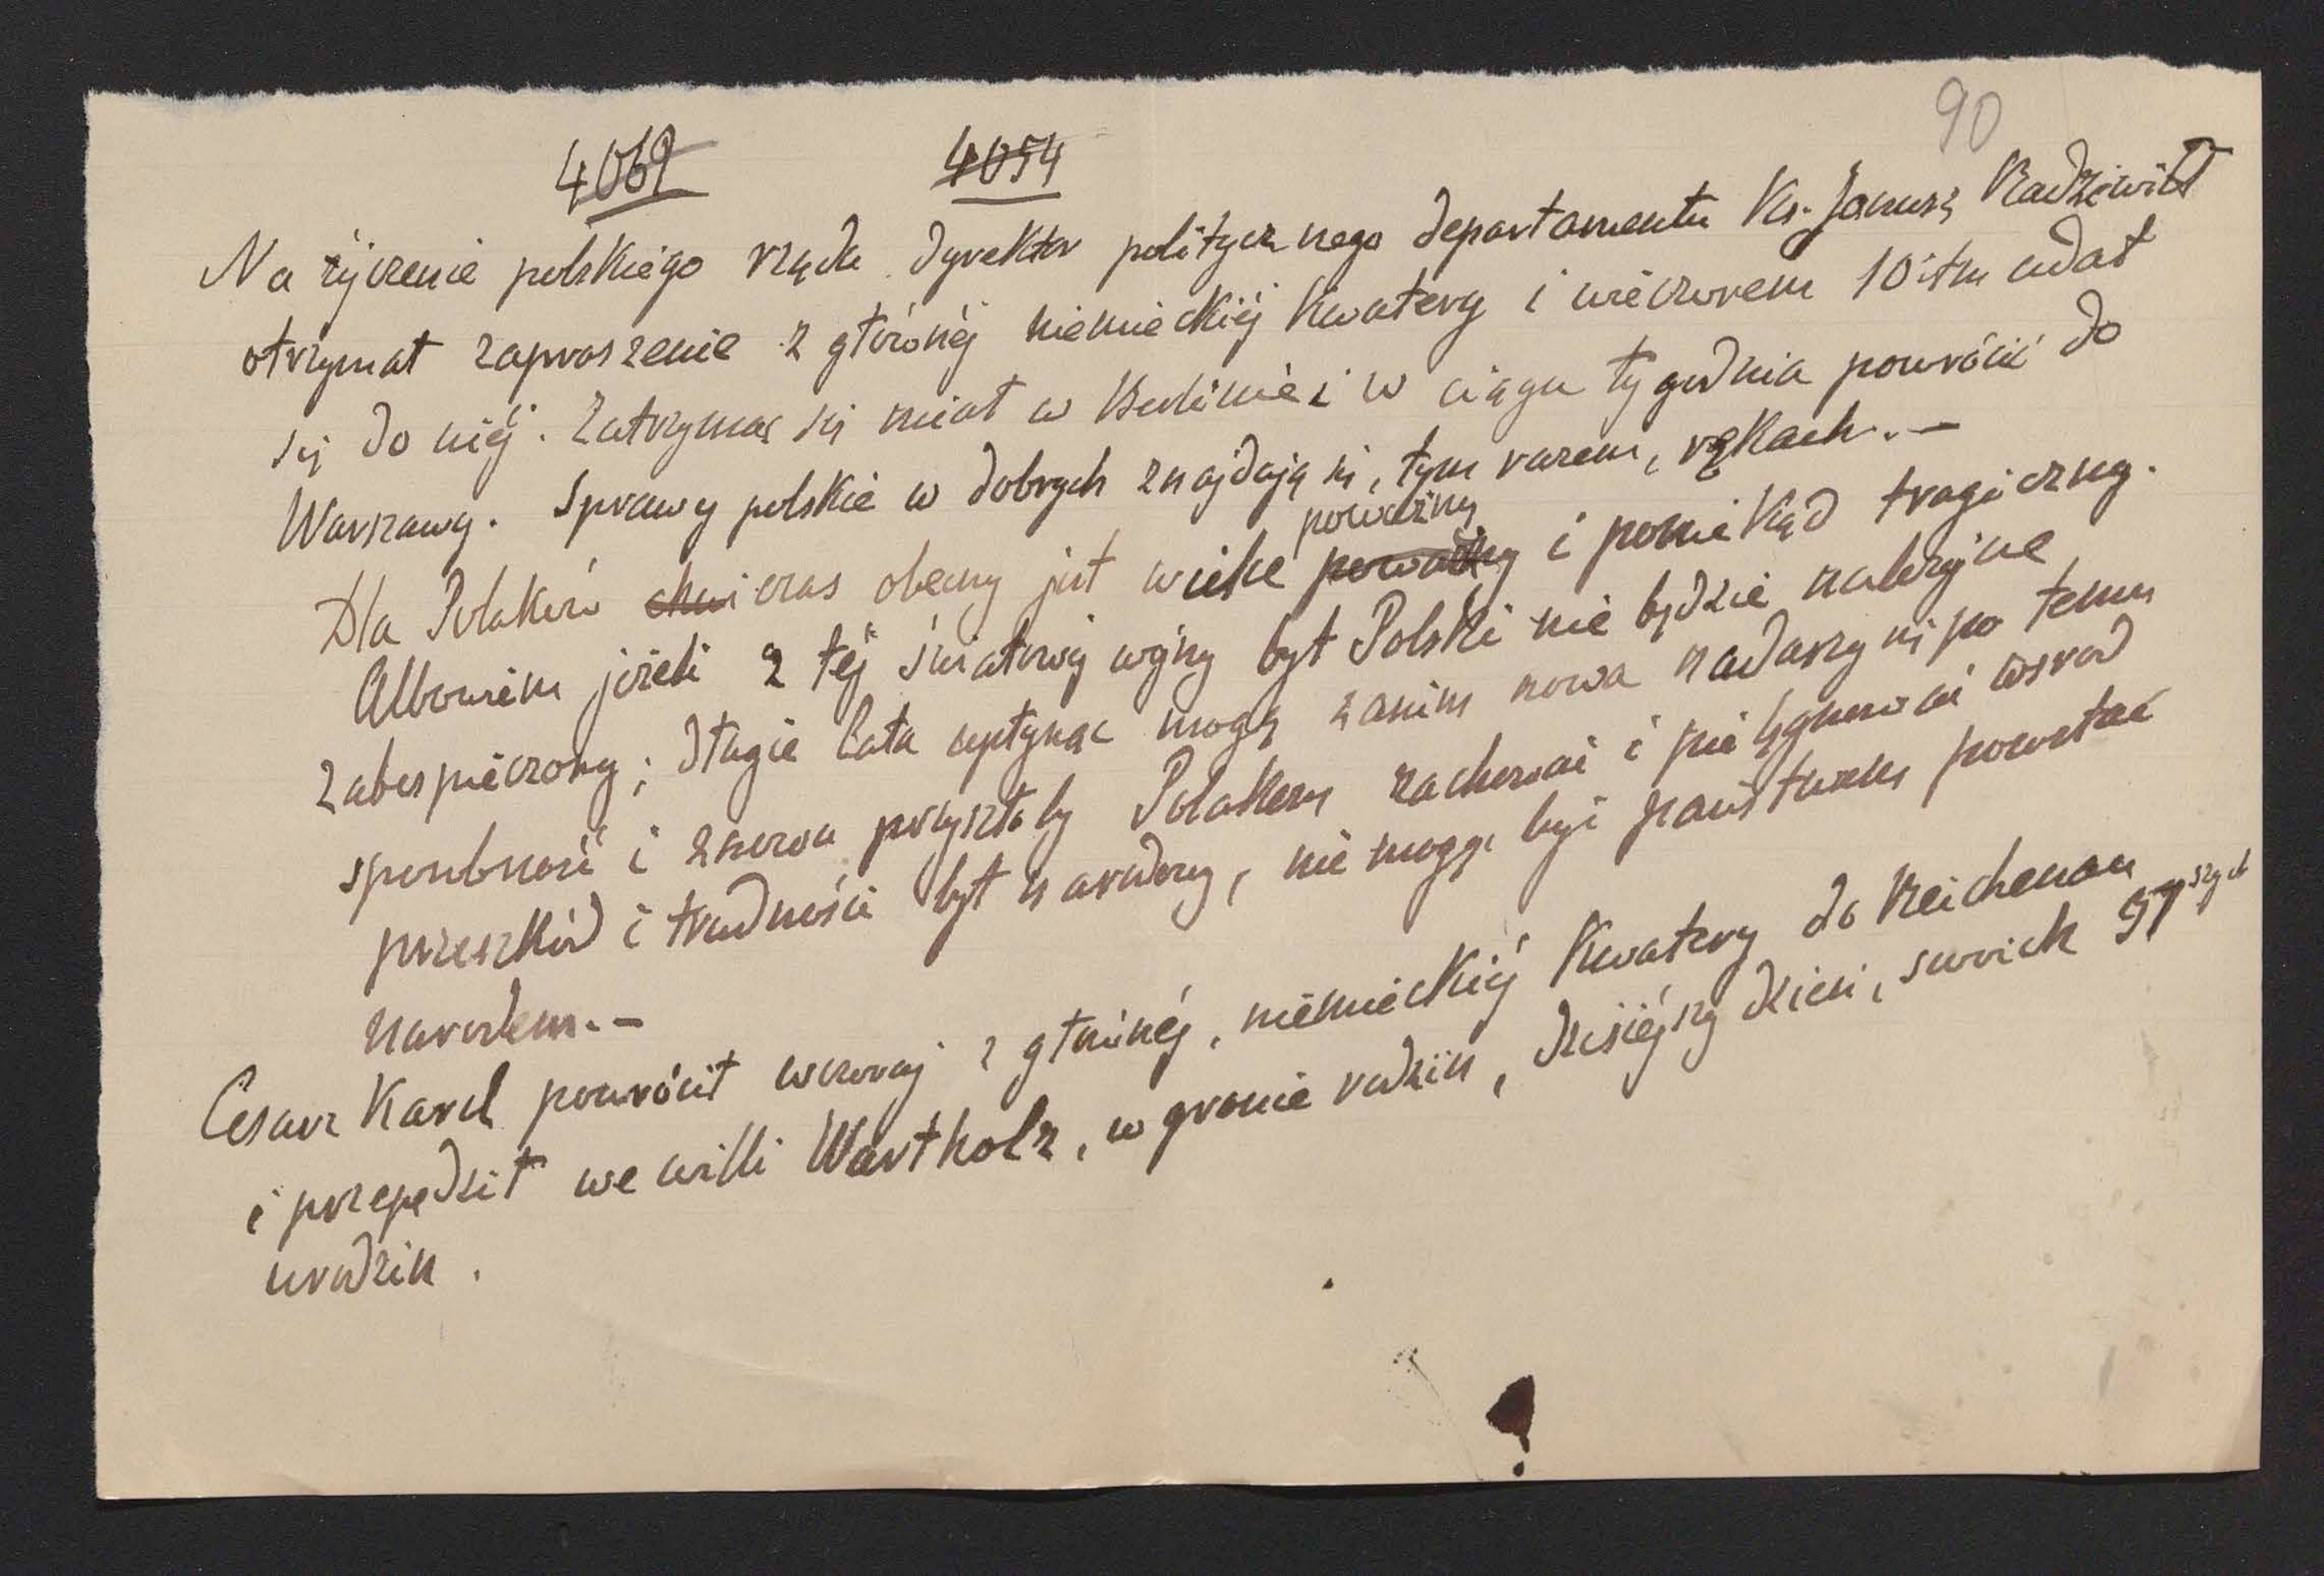 90
4069 4054
Na życzenie polskiego rządu dyrektor politycznego departamentu Ks. Janusz Radziwiłł
otrzymał zaproszenie z głównéj niemieckiéj Kwatery i wieczorem 10itm udał
się do niéj. Zatrzymać się miał w Berlinie i w ciągu tygodnia powrócić do
Warszawy. Sprawy polskie w dobrych znajdują się, tym razem, rękach. —
Dla Polaków chwi czas obecny jest wielce poważny poważny i poniekąd tragiczny.
Albowiem jeżeli z téj światowéj wojny byt Polski nie będzie należycie
zabespieczony; długie lata upłynąć mogą zanim nowa nadarzy się po temu
sposobność i znowu przyszło by Polakom zachować i pielęgnować wśród
przeszkód i trudności byt narodowy, nie mogąc być państwem pozostać
narodem. —
Cesarz Karol powrócił wczoraj z głównéj, niemieckiéj Kwatery do Reichenau
i przepędził we willi Wartholz, w gronie rodzin, dzisiéjszy dzień, swoich
urodzin.